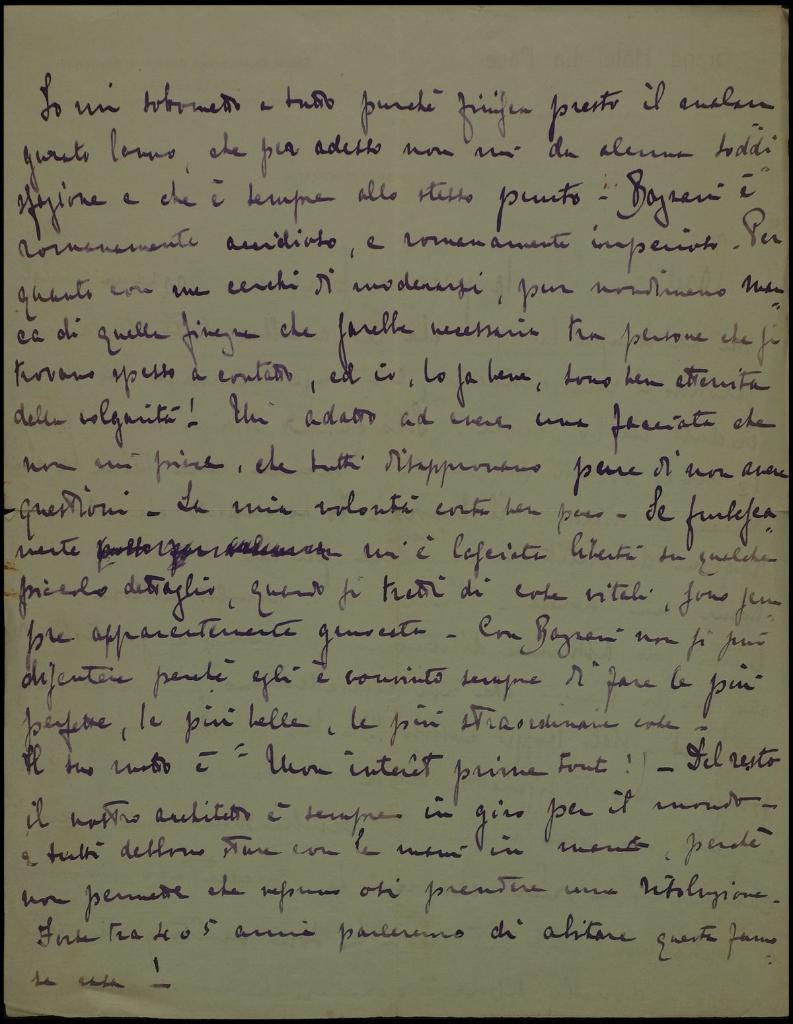 Io mi sobometto a tutto purchè finisca presto il malau
gurato lavoro, che per adesso non mi da alcuna soddi
sfazione e che è sempre allo stesso punto - Bazzani è
romanamente accidioso, e romanamente imperioso. Per
quanto con me cerchi di moderarsi, pur nondimeno man=
ca di quella finezza che sarebbe necessaria tra persone che si
trovano spesso a contatto, ed io, lo sa bene, sono ben atterrita
della volgarità! Mi adatto ad avere una facciata che
non mi piace, che tutti disapprovano pure di non avere
questioni - La mia volontà conta ben poco - Se
mi è lasciata libertà su qualche
piccolo dettaglio, quando si tratti di cose vitali, sono sem=
pre apparentemente Con Bazzani non si può
discutere perchè egli è convinto sempre di fare le più
perfette, le più belle, le più straordinarie cose -
Il suo motto è "Mon interêt prime tout!" - Del resto
il nostro architetto è sempre in giro per il mondo -
e tutti debbono stare con le mani in mano, perchè
non permette che nessuno osi prendere una risoluzione.
Forse tra 4 o 5 anni parleremo di abitare questa famo=
sa casa!